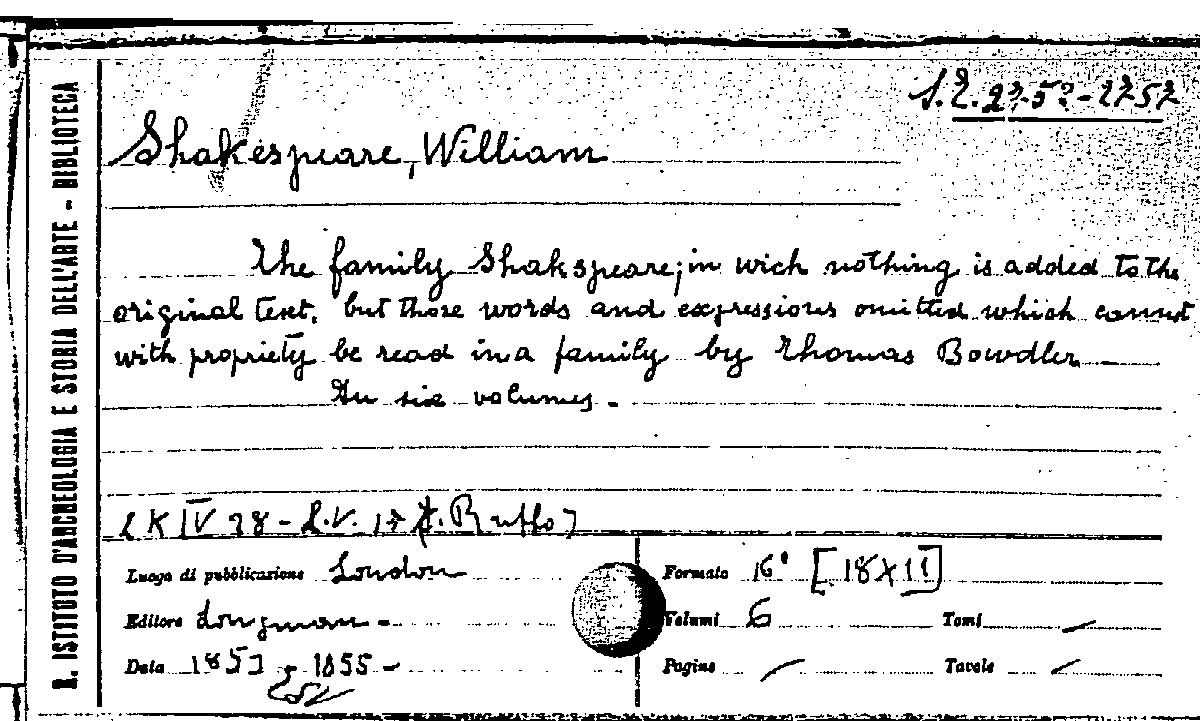 R. ISTITUTO D'ARCHEOLOGIA E STORIA DELL'ARTE - BIBLIOTECA
Shakespeare, William
The family Shakspeare; in wich nothing is added to the
original text, but those words and expressions omitted which cannot
with propriety be read in a family by Thomas Bowdler
In six volumes.
[K IV 28 - L.V. Ruffo]
Luogo di pubblicazione London
Formato 16° [18X11]
Editore Longman -
Volumi 6
Tomi —
Data 1853 - 1855 -
Pagine —
Tavole —